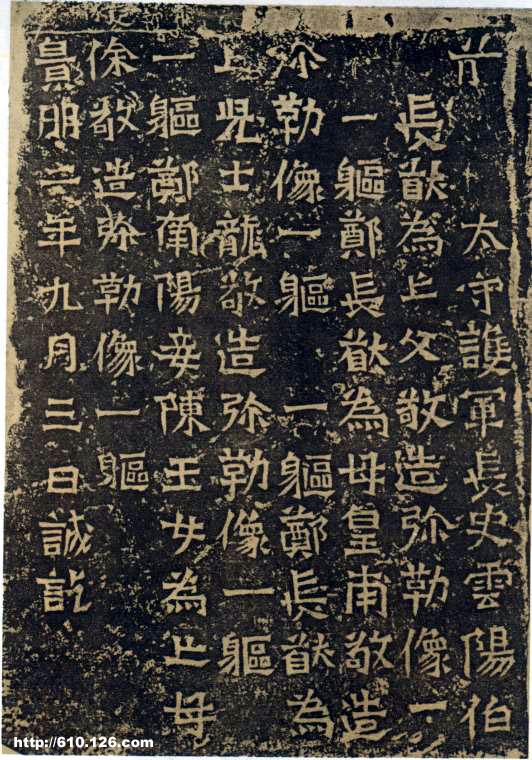 太守護軍長史雲陽伯
長猷為亡父敬造弥勒像一
一軀鄭長猷為母皇甫敬造
弥勒像一軀一軀鄭長猷為
亡児士龍敬造弥勒像一軀
一軀鄭南陽妾陳玉女為亡母
徐敬造弥勒像一軀
景明二年九月三日誡訖
http://610.126.com